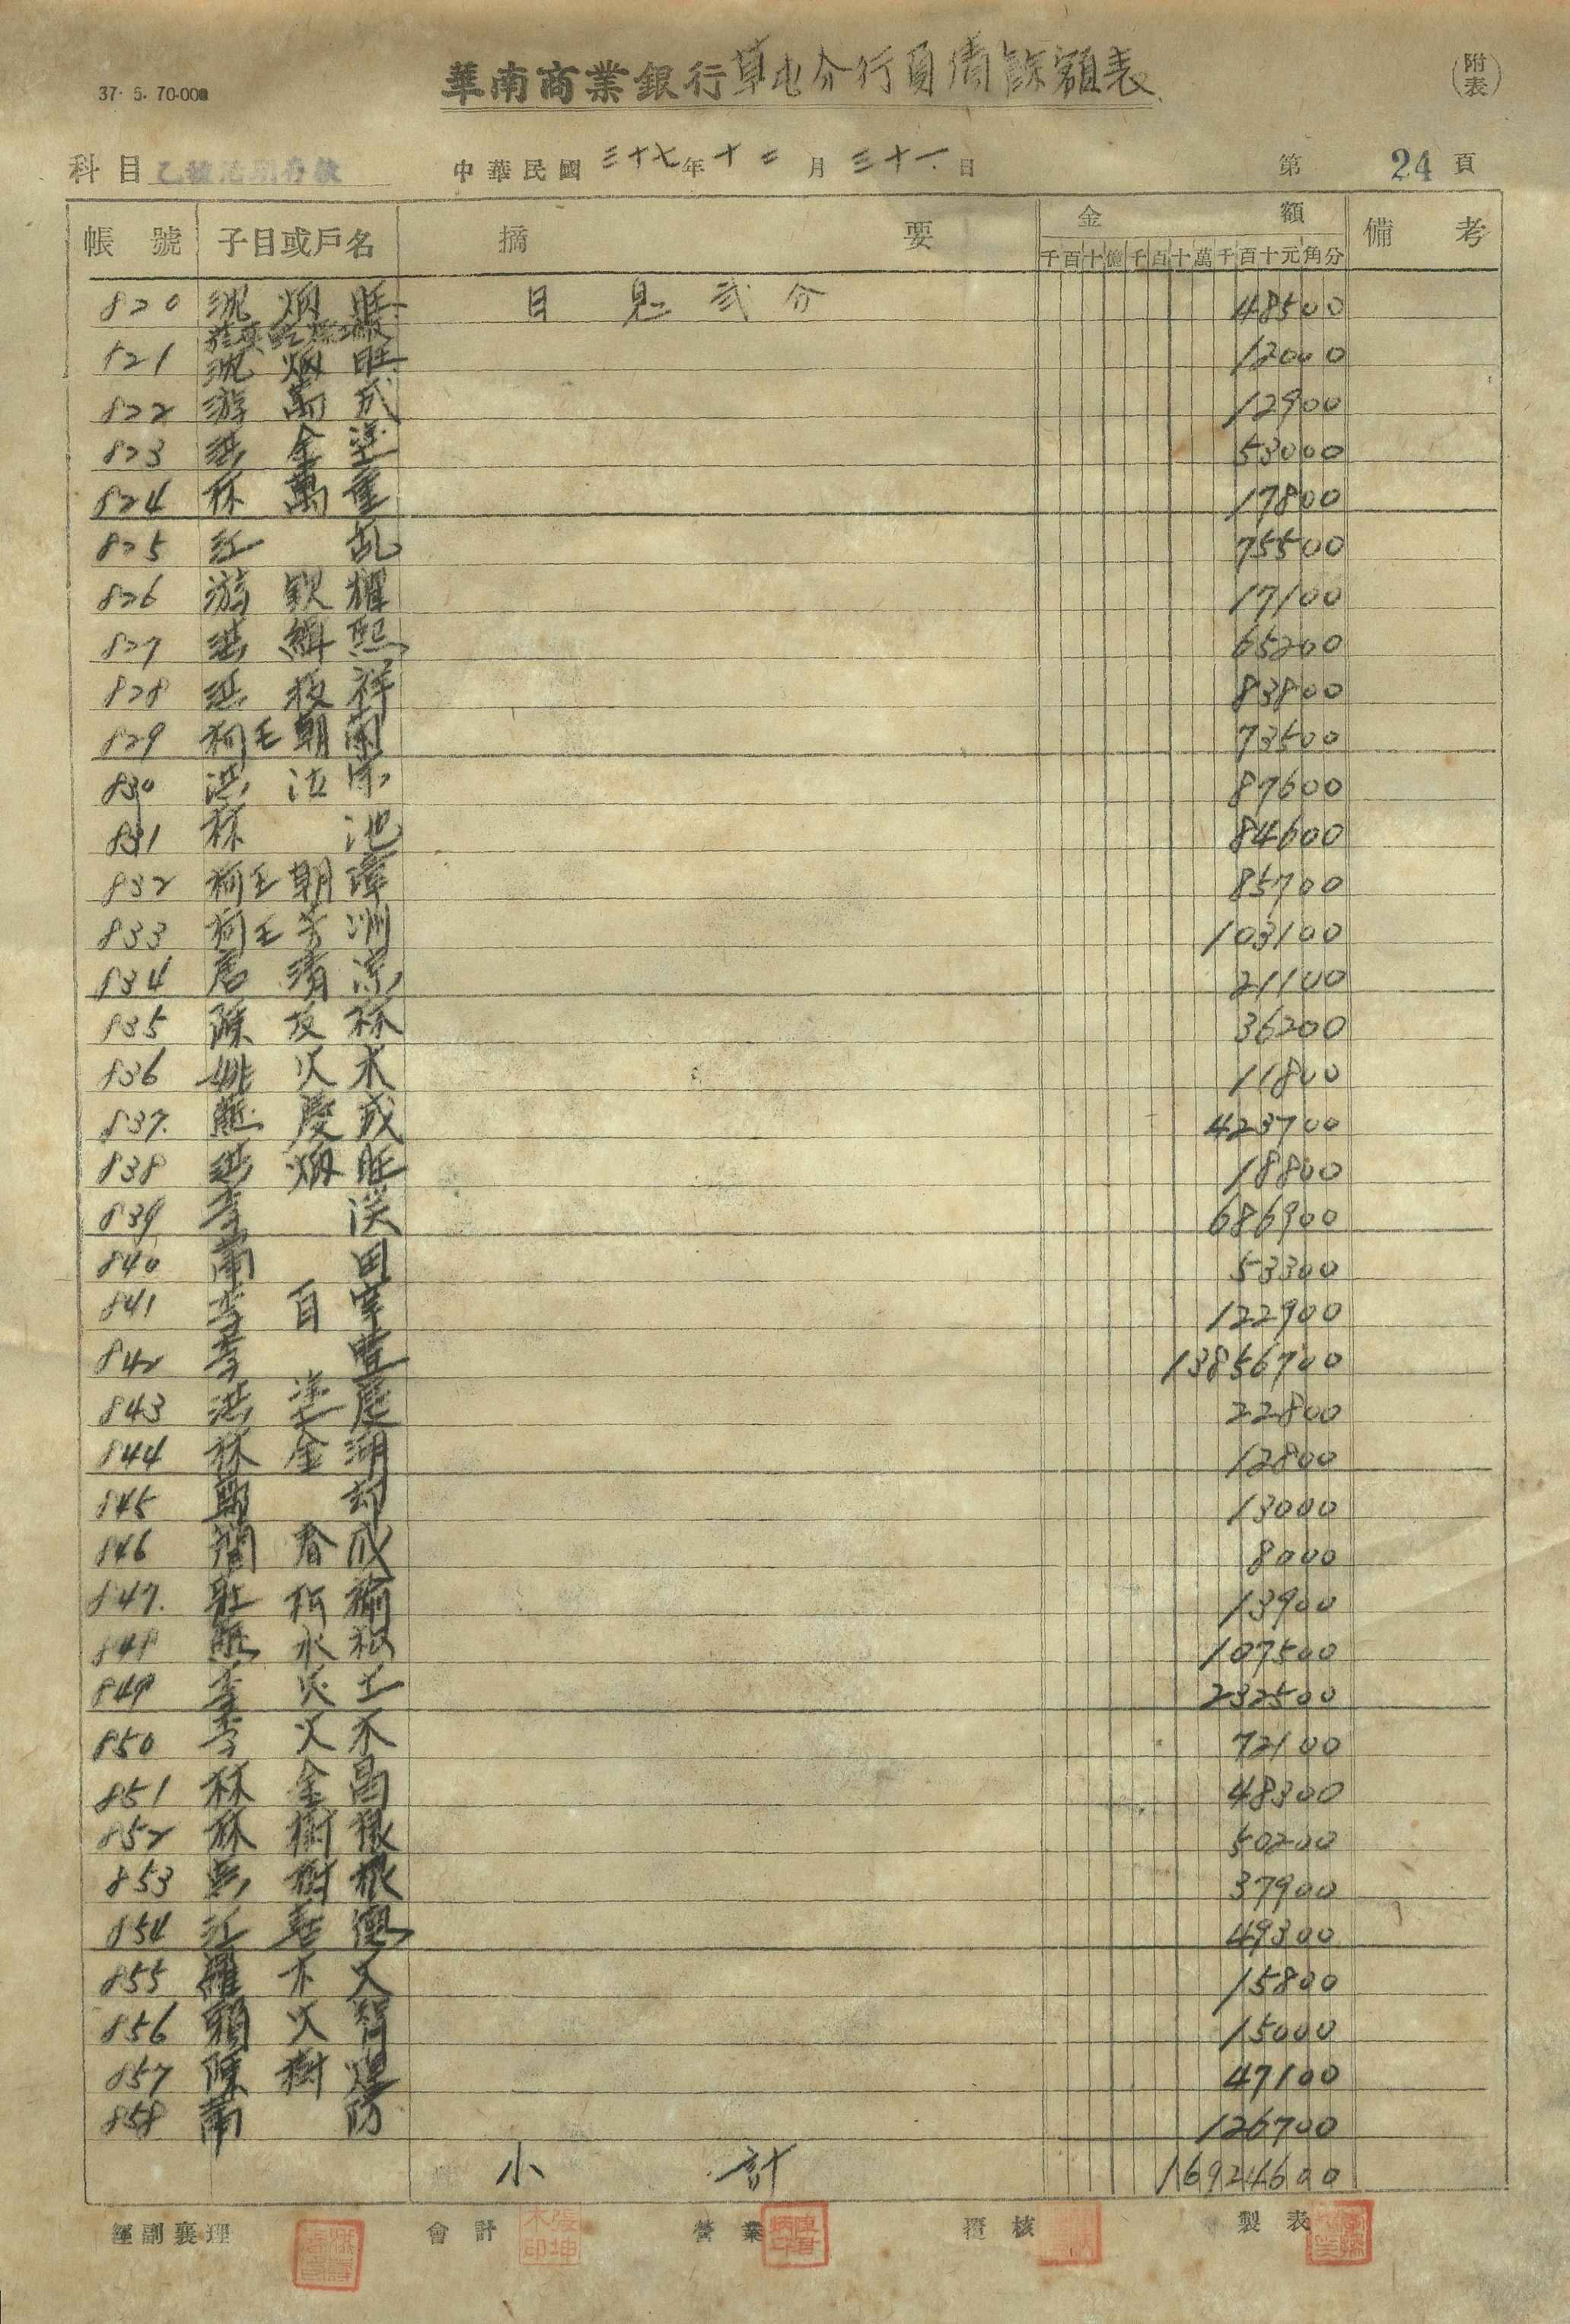 37. 5. 70-000
華南商業銀行草屯分行負債餘額表
(附表)
科目 乙種活期存款 中華民國三十七年十二月三十一日 第24頁
帳號 子目或戶名 摘要 金額 備考
千百十億千百十萬千百十元角分
820 沈炳旺 日息弍分 48500
821 沈炳旺 12000
822 游萬成 12900
823 洪金塗 53000
824 林萬重 17800
825 江乱 75500
826 游欽耀 17100
827 洪緝熙 65200
828 洪 祥 83800
829 柯毛朝蘭 73500
830 洪 宗 87600
831 林池 84600
832 柯毛朝璋 85700
833 柯毛芳洲 103100
834 唐清涼 21100
835 陳友林 36200
836 姚火木 11800
837. 熊慶成 423700
838 洪炳旺 18800
839 李漢 686900
840 蕭田 53300
841 李自 122900
842 李 13856700
843 洪塗慶 22800
844 林金湖 12800
845 却 13000
846 簡春成 8000
847. 莊 13900
848 熊水根 107500
849 李火土 232500
850 李火木 72100
851 林金昌 48300
852 林樹根 50200
853 吳樹根 37900
854 江喜德 49300
855 羅木火 15800
856 賴火 15000
857 陳樹煌 47100
858 蕭防 126700
小計 16924600
經副襄理 會計 營業 覆核 製表